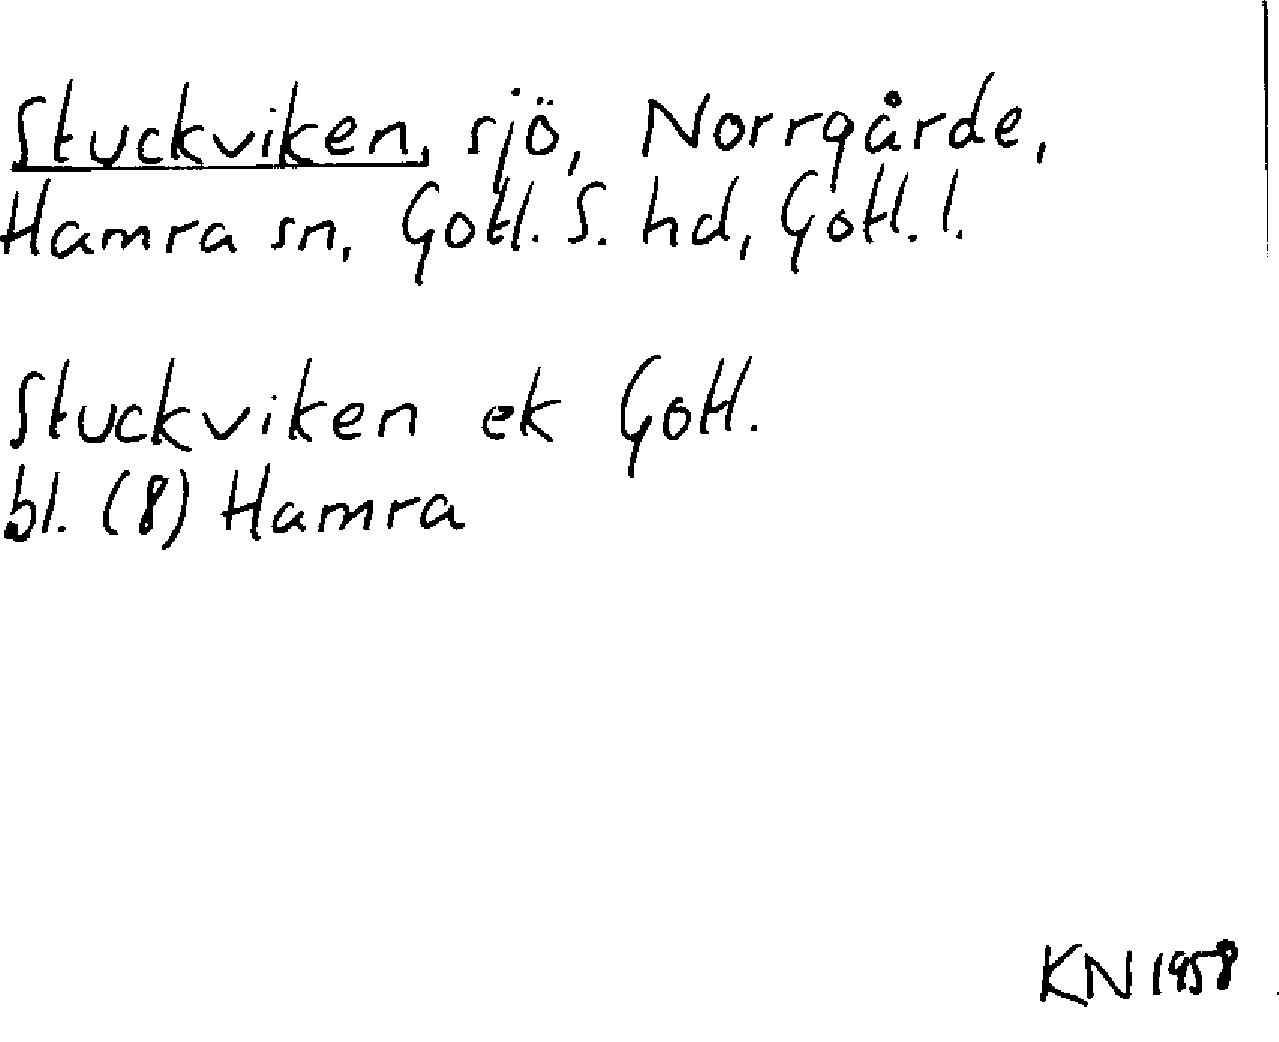 Stuckviken, sjö, Norrgårde,
Hamra sn, Gotl. S. hd, Gotl. l.
Stuckviken ek Gotl.
bl. (8) Hamra
KN 1958